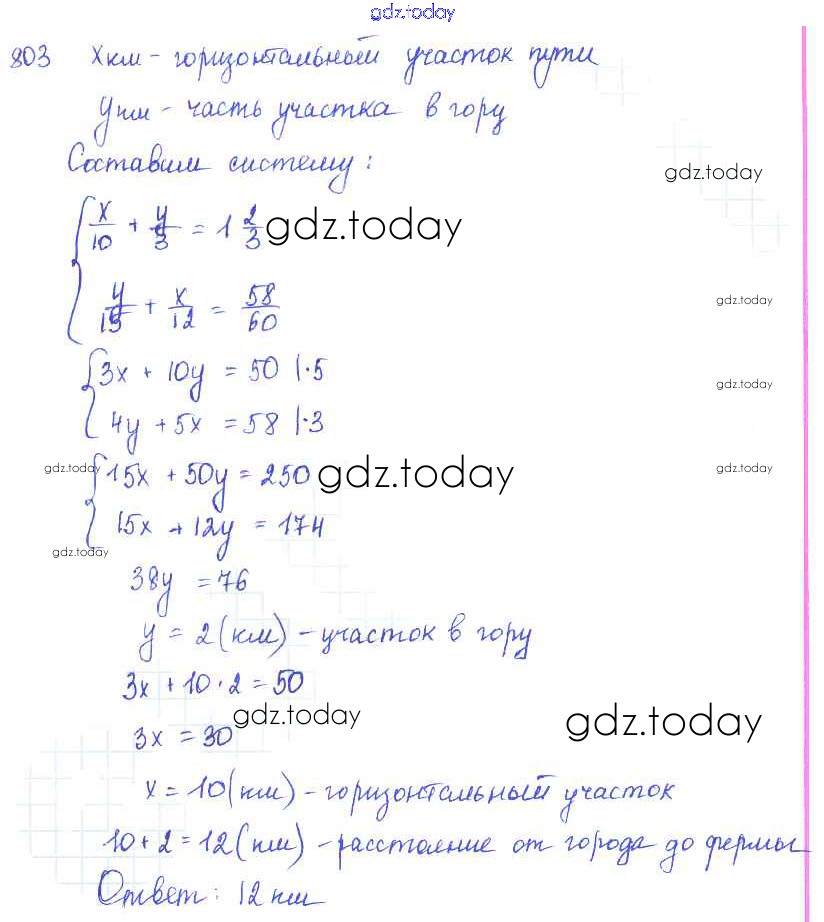 gdz.today
803 х км – горизонтальный участок пути
у км – часть участка в гору
Составим систему:
gdz.today
x/10 + y/3 = 1 2/3 gdz.today
y/15 + x/12 = 58/60
gdz.today
3x + 10y = 50 |·5
gdz.today
4y + 5x = 58 |·3
gdz.today 15x + 50y = 250 gdz.today gdz.today
15x + 12y = 174
gdz.today
38y = 76
y = 2 (км) – участок в гору
3x + 10·2 = 50
gdz.today gdz.today
3x = 30
x = 10 (км) – горизонтальный участок
10 + 2 = 12 (км) – расстояние от города до фермы
Ответ: 12 км